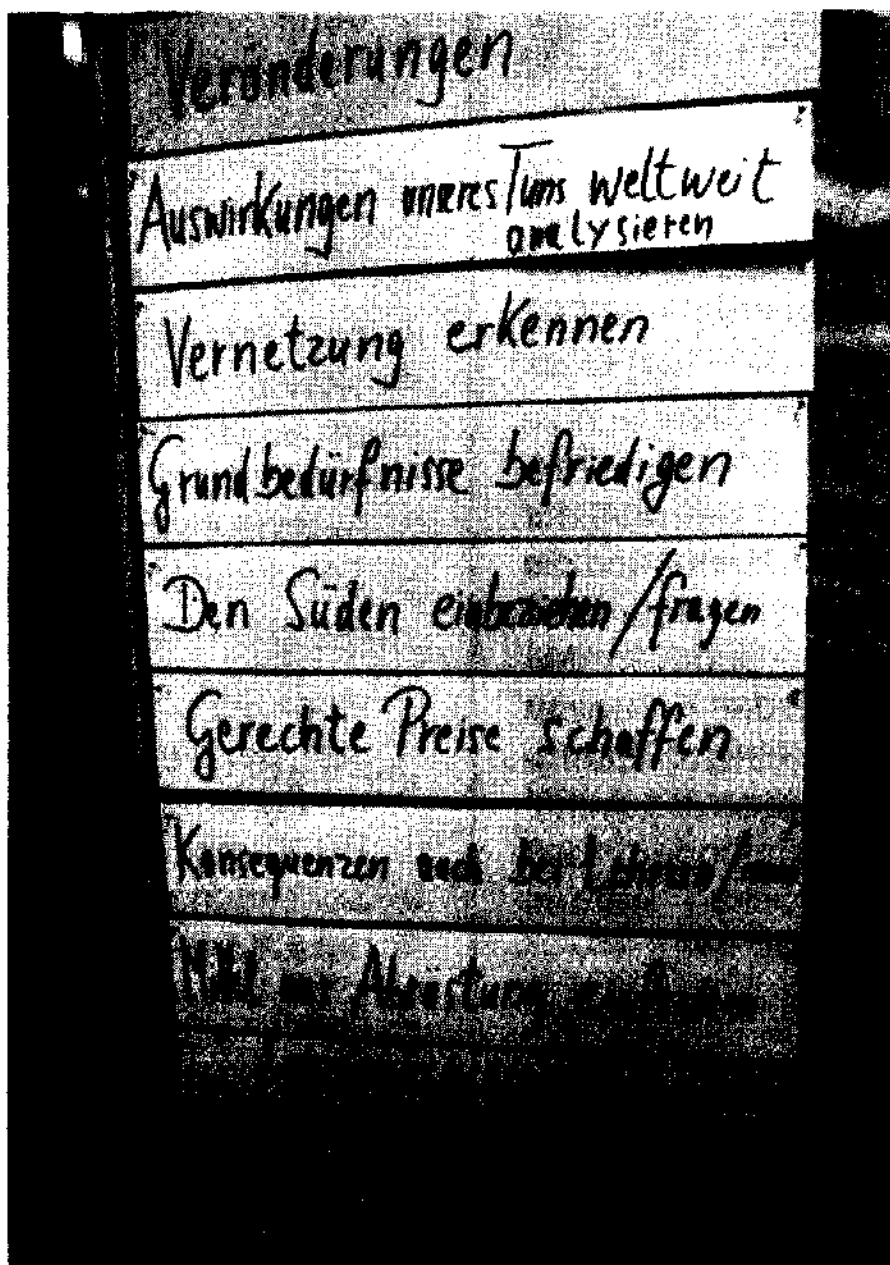 Veränderungen
Auswirkungen unseres Tuns weltweit
analysieren
Vernetzung erkennen
Grundbedürfnisse befriedigen
Den Süden einbeziehen/fragen
Gerechte Preise schaffen
Konsequenzen auch bei
Abrüstung